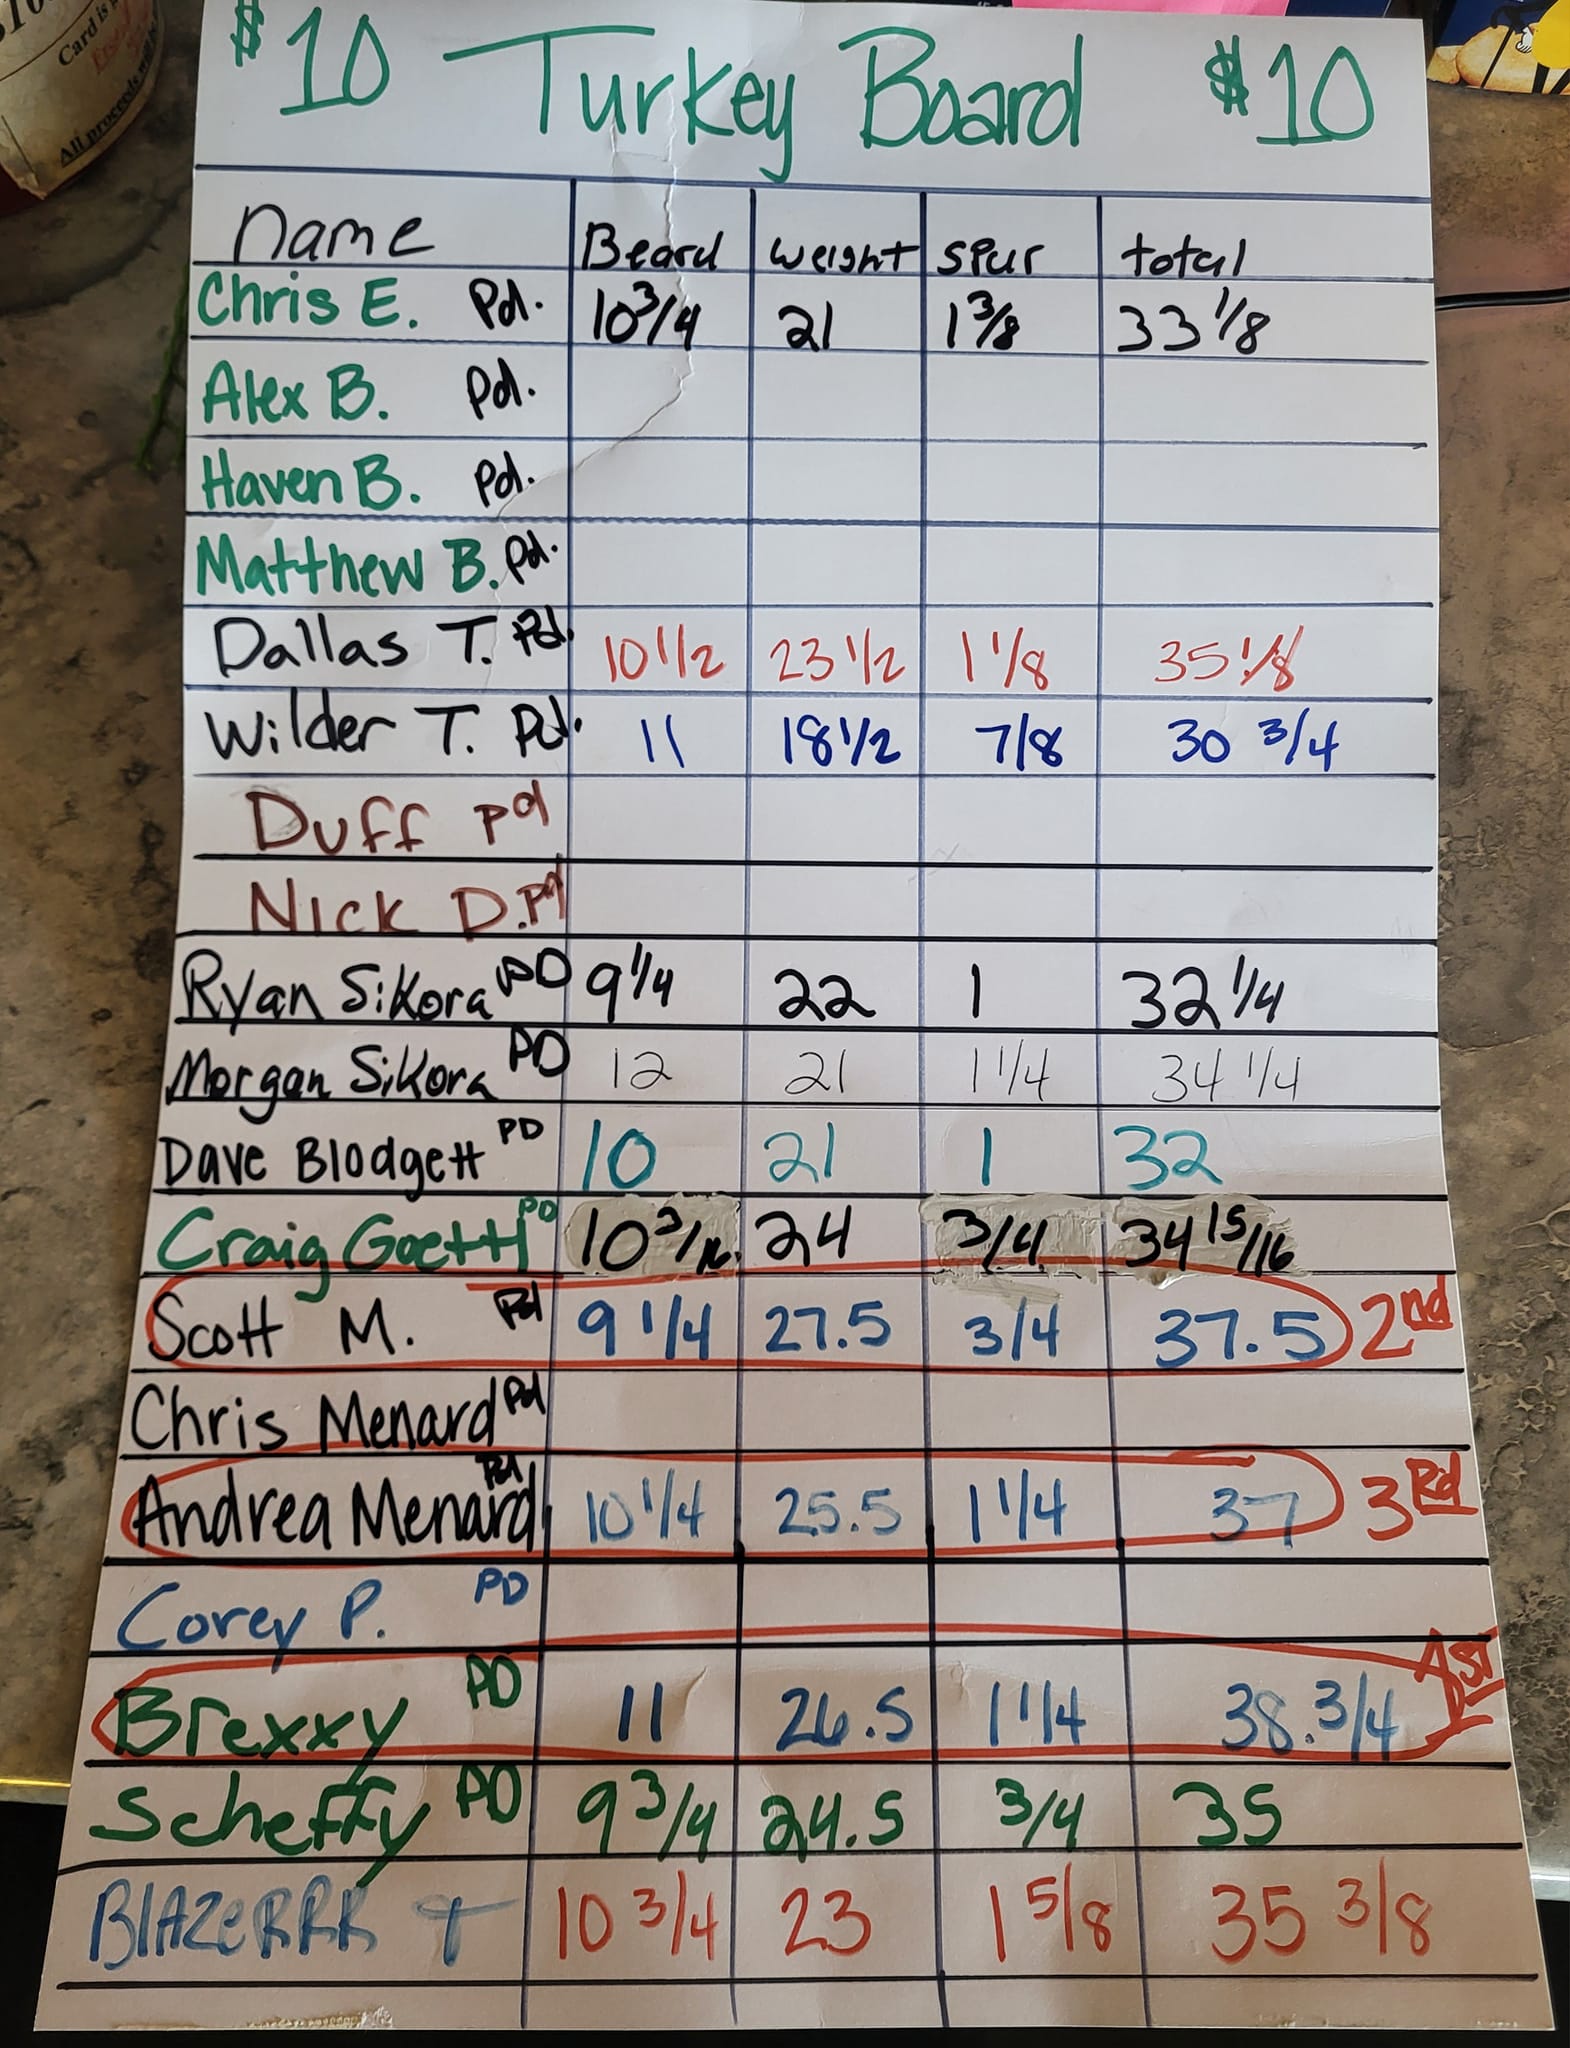 Card is
All proceeds
$10 Turkey Board $10
name Beard weight spur total
Chris E. Pd. 10 3/4 21 1 3/8 33 1/8
Alex B. Pd.
Haven B. Pd.
Matthew B. Pd.
Dallas T. Pd. 10 1/2 23 1/2 1 1/8 35 1/8
Wilder T. Pd. 11 18 1/2 7/8 30 3/4
Duff pd
Nick D. Pd
Ryan Sikora PD 9 1/4 22 1 32 1/4
Morgan Sikora PD 12 21 1 1/4 34 1/4
Dave Blodgett PD 10 21 1 32
Craig Goettl PD 10 3/16 24 3/4 34 15/16
Scott M. Pd 9 1/4 27.5 3/4 37.5 2nd
Chris Menard Pd
Andrea Menard Pd 10 1/4 25.5 1 1/4 37 3Rd
Corey P. PD
Brexxy PD 11 26.5 1 1/4 38.3/4 1st
Scheffy PD 9 3/4 24.5 3/4 35
BlAZeRRR 10 3/4 23 1 5/8 35 3/8